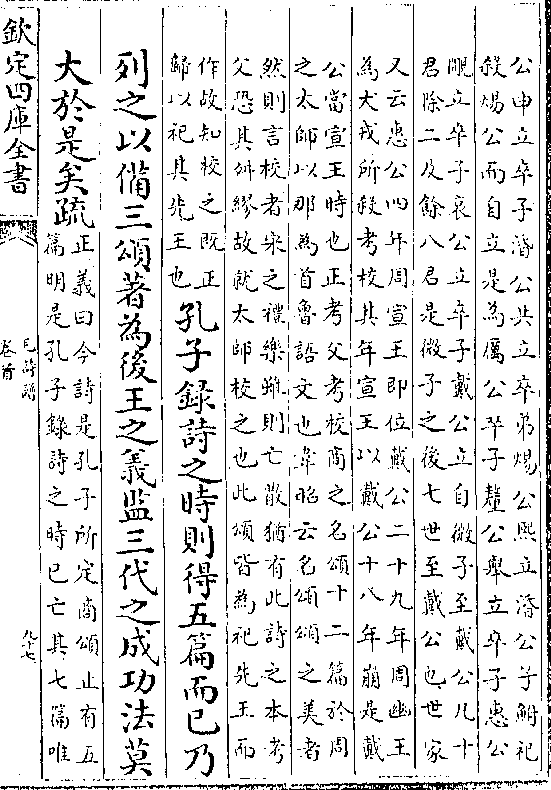 公申立卒子湣公共立卒弟煬公熙立湣公子鮒祀
弑煬公而自立是為厲公卒子釐公舉立卒子惠公
覵立卒子哀公立卒子戴公立自微子至戴公凡十
君除二及餘八君是微子之後七世至戴公也世家
又云惠公四年周宣王即位戴公二十九年周幽王
為犬戎所殺考校其年宣王以戴公十八年崩是戴
公當宣王時也正考父考校商之名頌十二篇於周
之太師以那為首魯語文也韋昭云名頌頌之美者
然則言校者宋之禮樂雖則亡散猶有此詩之本考
父恐其舛繆故就太師校之也此頌皆為祀先王而
作故知校之既正
歸以祀其先王也
孔子録詩之時則得五篇而已乃
列之以備三頌著為後王之義監三代之成功法莫
大於是矣疏
正義曰今詩是孔子所定商頌止有五
篇明是孔子録詩之時已亡其七篇唯
欽定四庫全書
毛詩譜
卷首
九十七